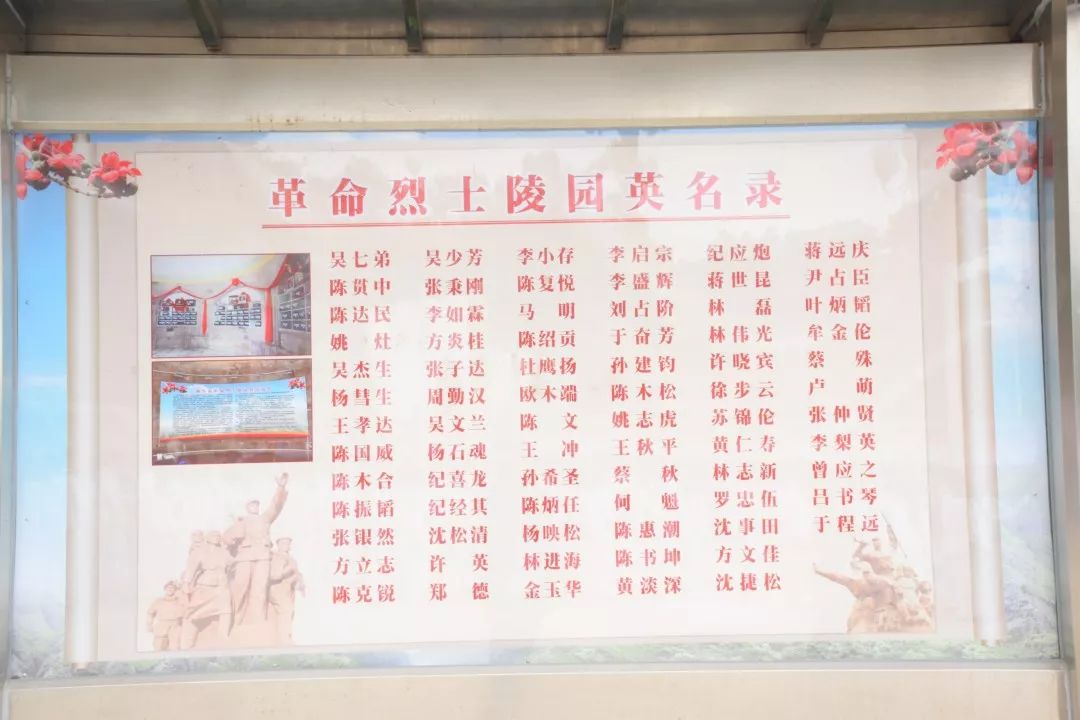 革命烈士陵园英名录
吴七弟 吴少芳 李小存 李启宗 纪应炮 蒋远庆
陈贯中 张秉刚 陈复悦 李盛辉 蒋世昆 尹占臣
陈达民 李如霖 马明 刘占阶 林磊 叶炳韬
姚灶 方炎桂 陈绍贡 于奋芳 林伟光 牟金伦
吴杰生 张子达 杜鹰扬 孙建钧 许晓宾 蔡殊
杨彗生 周勤汉 欧木端 陈木松 徐步云 卢萌
王孝达 吴文兰 陈文 姚志虎 苏锦伦 张仲贤
陈国威 杨石魂 王冲 王秋平 黄仁寿 李梨英
陈木合 纪喜龙 孙希圣 蔡秋 林志新 曾应之
陈振韬 纪经其 陈炳任 何魁 罗忠伍 吕书琴
张银然 沈松清 杨映松 陈惠潮 沈事田 于程远
方立志 许英 林进海 陈书坤 方文佳
陈克锐 郑德 金玉华 黄淡深 沈捷松